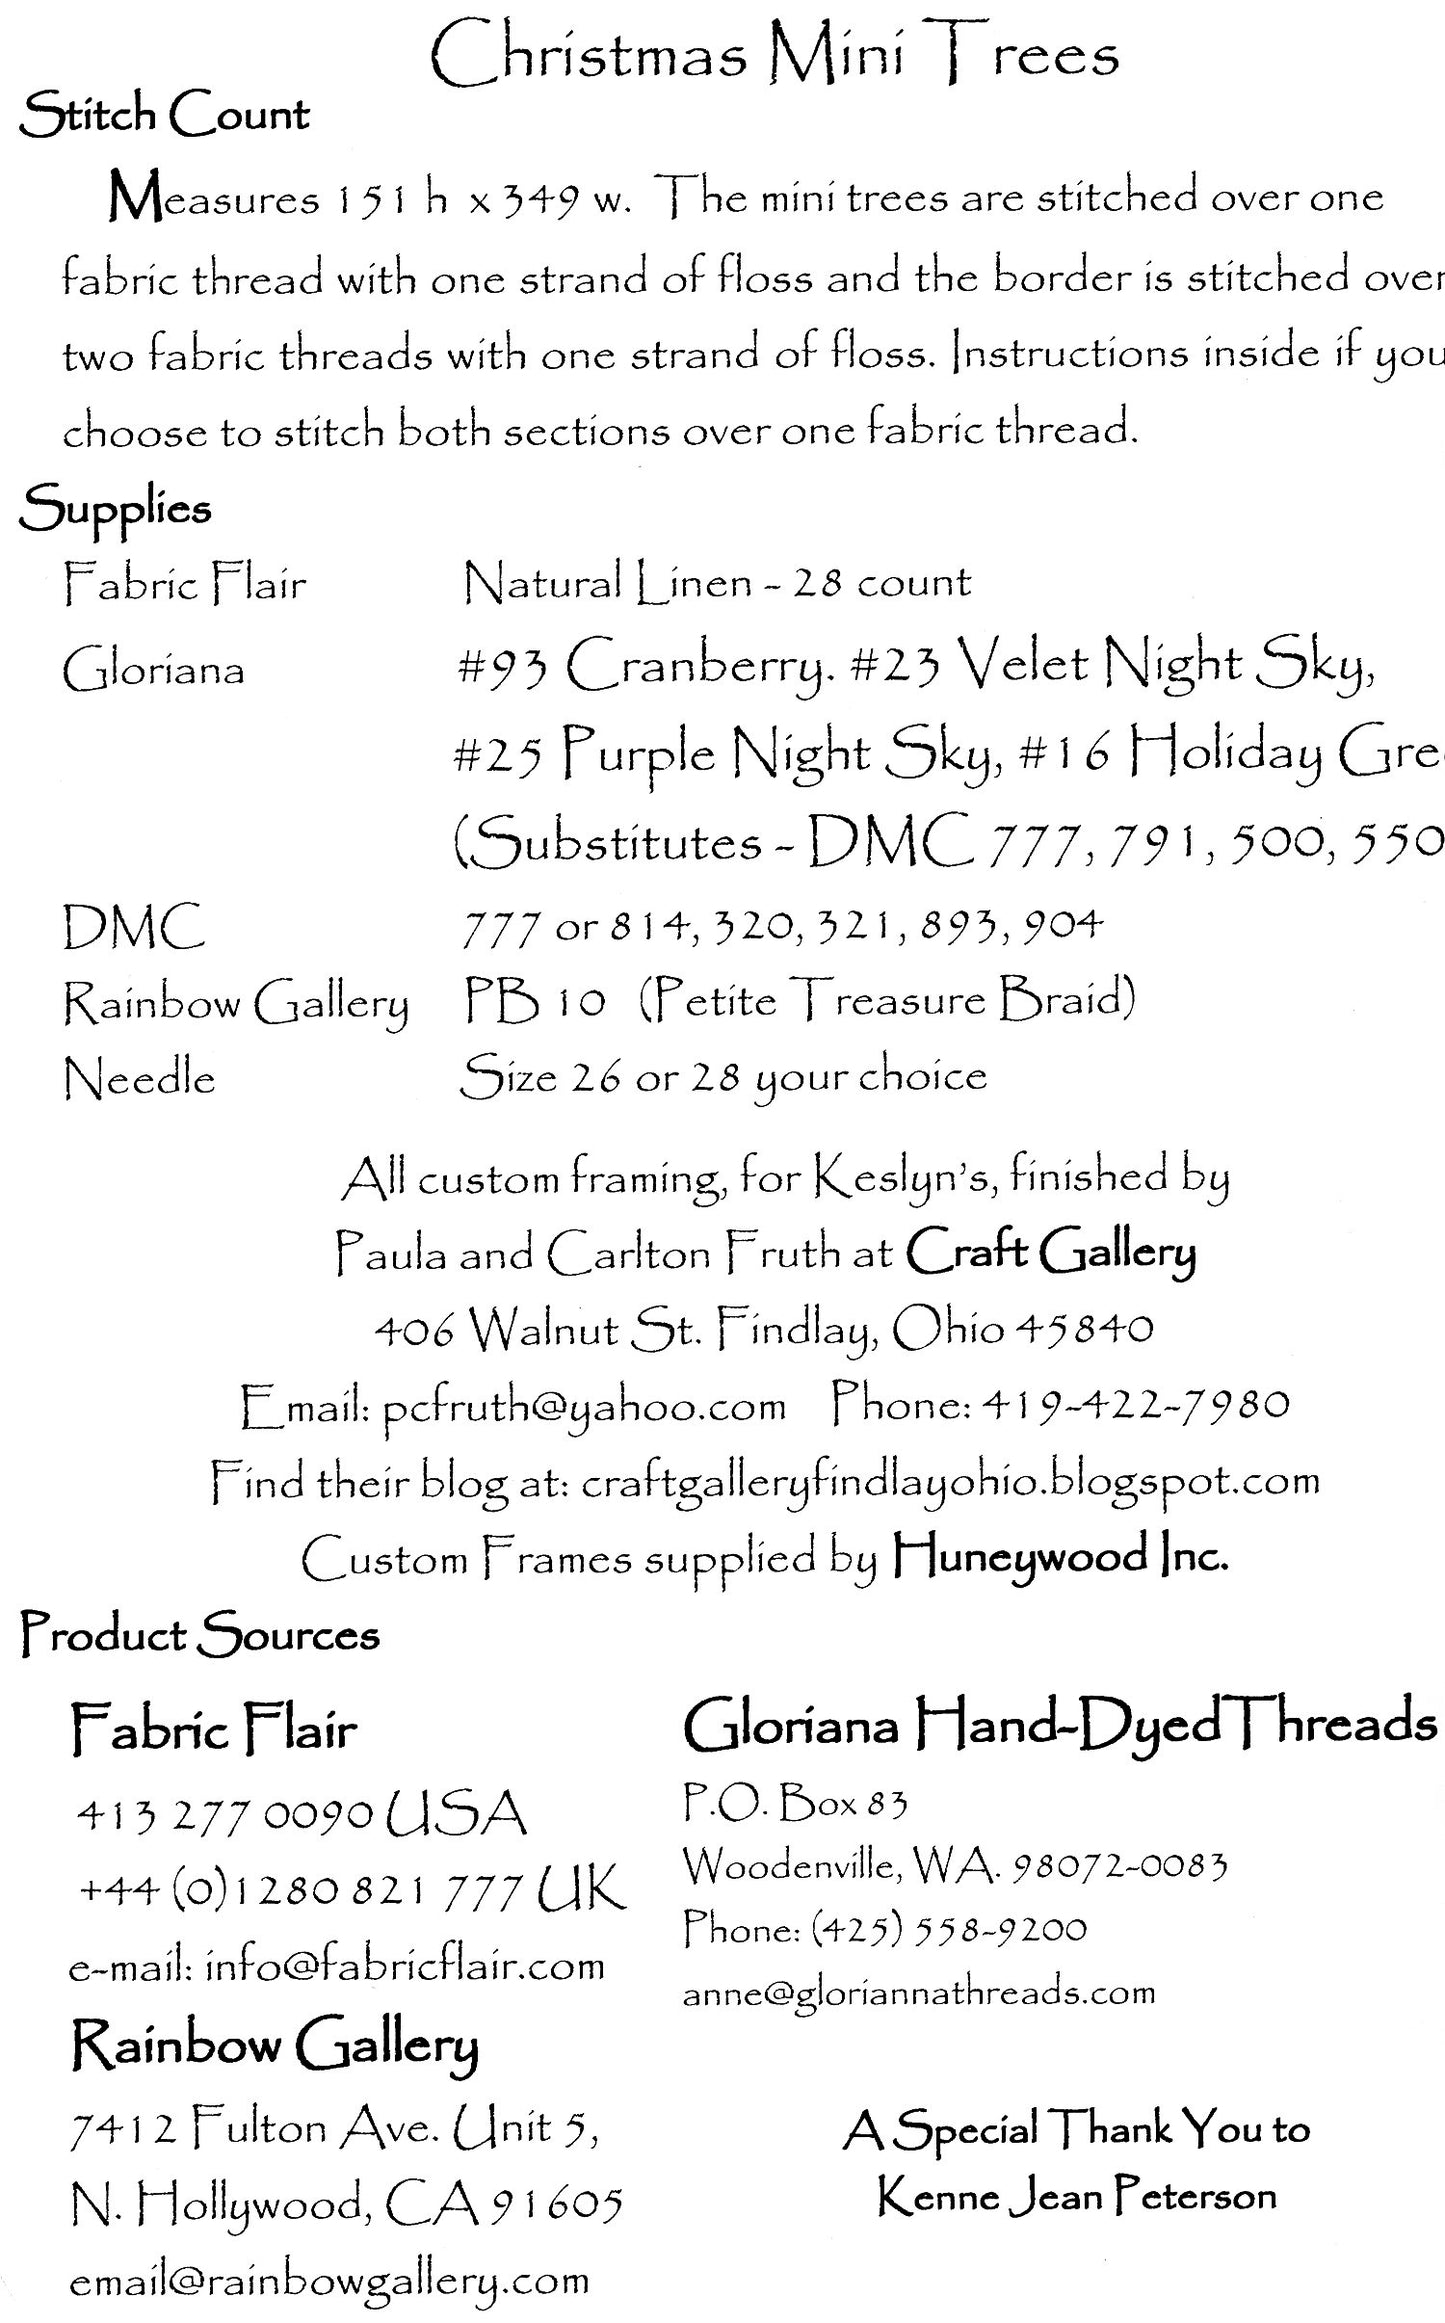 Christmas Mini Trees
Stitch Count
Measures 151 h x 349 w. The mini trees are stitched over one
fabric thread with one strand of floss and the border is stitched over
two fabric threads with one strand of floss. Instructions inside if you
choose to stitch both sections over one fabric thread.
Supplies
Fabric Flair Natural Linen - 28 count
Gloriana #93 Cranberry. #23 Velet Night Sky,
#25 Purple Night Sky, #16 Holiday Gre
(Substitutes - DMC 777, 791, 500, 550
DMC 777 or 814, 320, 321, 893, 904
Rainbow Gallery PB 10 (Petite Treasure Braid)
Needle Size 26 or 28 your choice
All custom framing, for Keslyn's, finished by
Paula and Carlton Fruth at Craft Gallery
406 Walnut St. Findlay, Ohio 45840
Email: pcfruth@yahoo.com Phone: 419-422-7980
Find their blog at: craftgalleryfindlayohio.blogspot.com
Custom Frames supplied by Huneywood Inc.
Product Sources
Fabric Flair
413 277 0090 USA
+44 (0)1280 821 777 UK
e-mail: info@fabricflair.com
Rainbow Gallery
7412 Fulton Ave. Unit 5,
N. Hollywood, CA 91605
email@rainbowgallery.com
Gloriana Hand-DyedThreads
P.O. Box 83
Woodenville, WA. 98072-0083
Phone: (425) 558-9200
anne@gloriannathreads.com
A Special Thank You to
Kenne Jean Peterson